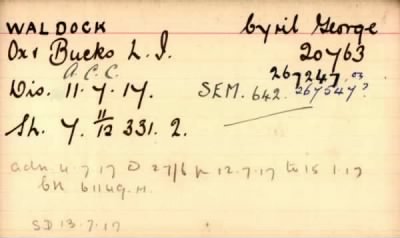 WALDOCK Cyril George
Oxf Bucks L.I. 20763
A.C.C. 267247. or
Dis. 11.7.17. SEM. 642. 267547?
Sh. 7. 11/12 331. 2.
adm 4.7.17 D 27/6 12.7.17 to 15 1.17
61149.H.
SD 13.7.17